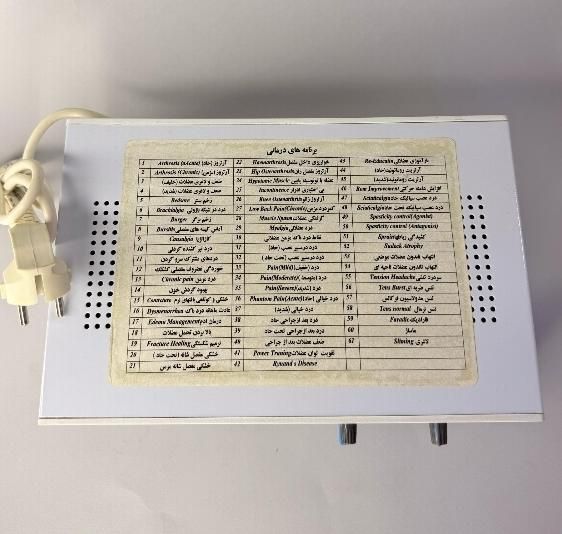 برنامه های درمانی
1 Arthrosis (sAcute) آرتروز (حاد)
2 Arthrosis (Chronic) آرتروز (مزمن)
3 ضعف و لاغری عضلات (خفیف)
4 ضعف و لاغری عضلات (شدید)
5 زخم بستر
6 Brachialgia درد در شبکه بازوئی
7 Burger زخم برگر
8 Bursitis
9 Causalgia
10 درد پیر کننده گردنی
11 دردهای مشترک سر و گردن
12 خوردگی غضروف مفصلی کشکک
13 Chronic pain درد مزمن
14 بهبود گردش خون
15
16 Dysmenorrhea
17 Edema Management درمان ادم
18 بالا بردن تحمل عضلات
19 Fracture Healing ترمیم شکستگی
20 خشکی مفصل شانه (تحت حاد)
21 خشکی مفصل شانه مزمن
22 Hemarthrosis خونریزی داخل مفصل
23 Hip Osteoarthrosis آرتروز مفصل ران
24
25 Incontinence بی اختیاری ادرار
26 Knee Osteoarthrosis آرتروز زانو
27 Low Back Pain(Cheronic) کمر درد مزمن
28 Muscle Spasm گرفتگی عضلات
29 Myalgia درد عضلانی
30 نقاط درد ناک عضلانی
31 درد در مسیر عصب (حاد)
32 درد در مسیر عصب (تحت حاد)
33 Pain(Mild) درد (خفیف)
34 Pain(Moderate) درد (متوسط)
35 Pain(Severe) درد (شدید)
36 Phantom Pain(Acute) درد خیالی (حاد)
37 درد خیالی (شدید)
38 درد بعد از جراحی حاد
39 درد بعد از جراحی تحت حاد
40 ضعف عضلات بعد از جراحی
41 Power Traning تقویت توان عضلات
42 Rynaud s Disease
43 Re-Education بازآموزی عضلانی
44 آرتریت روماتوئید(حاد)
45 آرتریت روماتوئید
46 Rom Improvement افزایش دامنه حرکتی
47 درد عصب سیاتیک حاد
48 درد عصب سیاتیک تحت حاد
49 Spasticity control(Agonist)
50 Spasticity control (Antagonist)
51 Sprain کشیدگی رباط
52 Sudack Atrophy
53 التهاب تاندون عضلات موضعی
54 التهاب تاندون عضلات ناحیه ای
55 Tension Headache سردرد تنشی
56 Tens Burst تنس ضربه ای
57 تنس مدولاسیون فرکانس
58 Tens normal تنس نرمال
59 Faradic فارادیک
60 ماساژ
61 Sliming لاغری